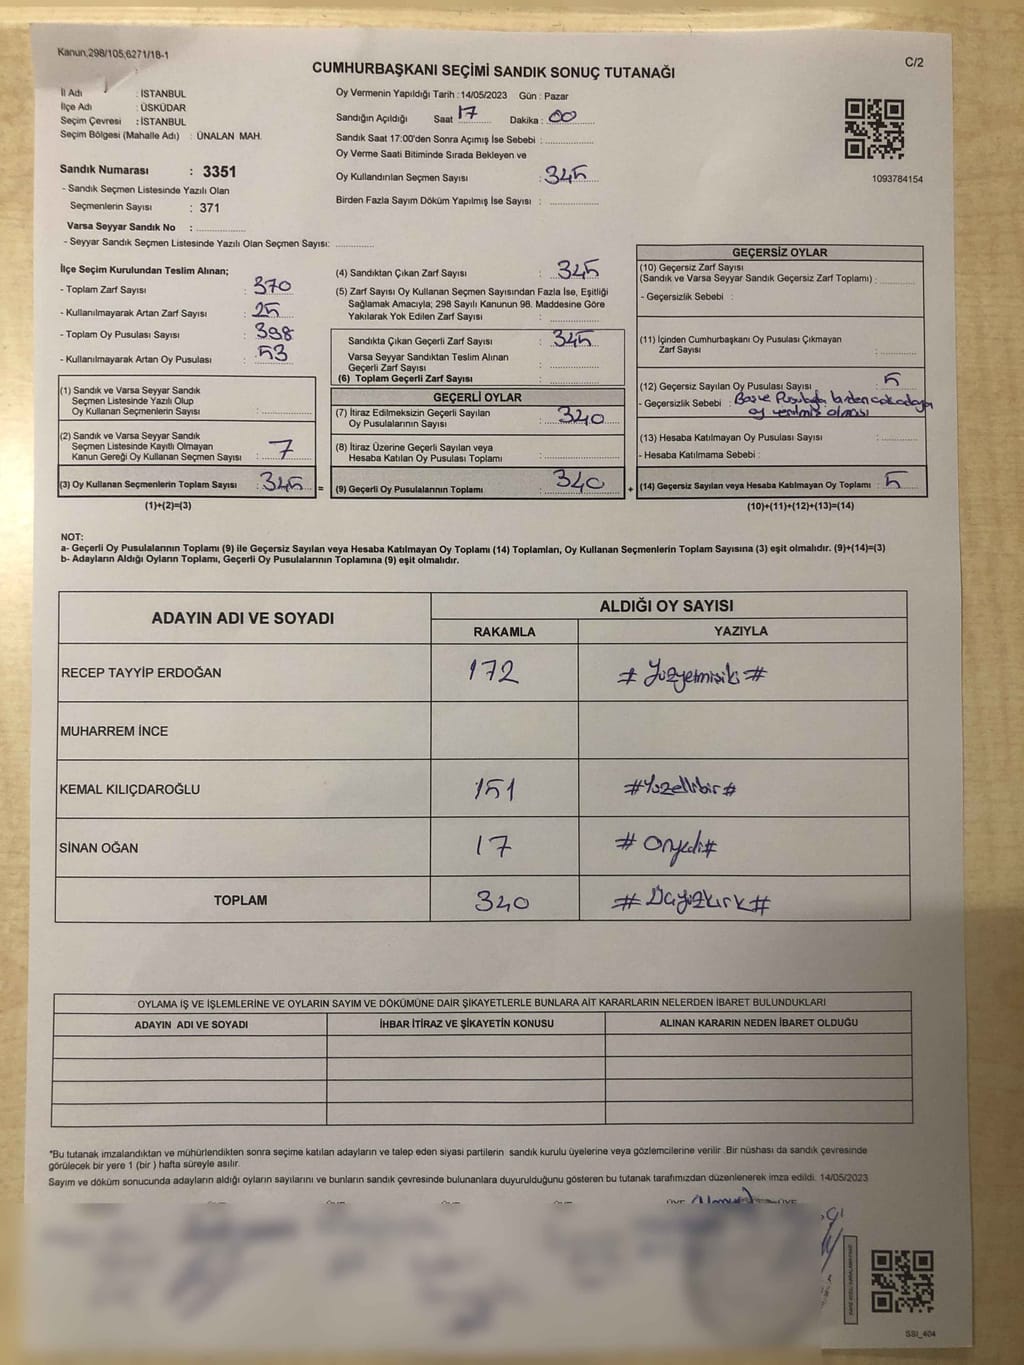 Kanun,298/105;6271/18-1
C/2
CUMHURBAŞKANI SEÇİMİ SANDIK SONUÇ TUTANAĞI
İl Adı : İSTANBUL
İlçe Adı : ÜSKÜDAR
Seçim Çevresi : İSTANBUL
Seçim Bölgesi (Mahalle Adı) : ÜNALAN MAH.
Sandık Numarası : 3351
- Sandık Seçmen Listesinde Yazılı Olan
Seçmenlerin Sayısı : 371
Varsa Seyyar Sandık No :
- Seyyar Sandık Seçmen Listesinde Yazılı Olan Seçmen Sayısı:
Oy Vermenin Yapıldığı Tarih : 14/05/2023 Gün : Pazar
Sandığın Açıldığı Saat 17 Dakika : 00
Sandık Saat 17:00'den Sonra Açımış İse Sebebi :
Oy Verme Saati Bitiminde Sırada Bekleyen ve
Oy Kullandırılan Seçmen Sayısı : 345
Birden Fazla Sayım Döküm Yapılmış İse Sayısı :
1093784154
İlçe Seçim Kurulundan Teslim Alınan;
- Toplam Zarf Sayısı : 370
- Kullanılmayarak Artan Zarf Sayısı : 25
- Toplam Oy Pusulası Sayısı : 398
- Kullanılmayarak Artan Oy Pusulası : 53
(1) Sandık ve Varsa Seyyar Sandık
Seçmen Listesinde Yazılı Olup
Oy Kullanan Seçmenlerin Sayısı :
(2) Sandık ve Varsa Seyyar Sandık
Seçmen Listesinde Kayıtlı Olmayan
Kanun Gereği Oy Kullanan Seçmen Sayısı : 7
(3) Oy Kullanan Seçmenlerin Toplam Sayısı : 345 =
(1)+(2)=(3)
(4) Sandıktan Çıkan Zarf Sayısı : 345
(5) Zarf Sayısı Oy Kullanan Seçmen Sayısından Fazla İse, Eşitliği
Sağlamak Amacıyla; 298 Sayılı Kanunun 98. Maddesine Göre
Yakılarak Yok Edilen Zarf Sayısı :
Sandıkta Çıkan Geçerli Zarf Sayısı : 345
Varsa Seyyar Sandıktan Teslim Alınan
Geçerli Zarf Sayısı :
(6) Toplam Geçerli Zarf Sayısı :
GEÇERLİ OYLAR
(7) İtiraz Edilmeksizin Geçerli Sayılan
Oy Pusulalarının Sayısı : 340
(8) İtiraz Üzerine Geçerli Sayılan veya
Hesaba Katılan Oy Pusulası Toplamı :
(9) Geçerli Oy Pusulalarının Toplamı : 340 +
GEÇERSİZ OYLAR
(10) Geçersiz Zarf Sayısı
(Sandık ve Varsa Seyyar Sandık Geçersiz Zarf Toplamı) :
- Geçersizlik Sebebi :
(11) İçinden Cumhurbaşkanı Oy Pusulası Çıkmayan
Zarf Sayısı :
(12) Geçersiz Sayılan Oy Pusulası Sayısı : 5
- Geçersizlik Sebebi :
oy verilmiş olması
(13) Hesaba Katılmayan Oy Pusulası Sayısı :
- Hesaba Katılmama Sebebi :
(14) Geçersiz Sayılan veya Hesaba Katılmayan Oy Toplamı : 5
(10)+(11)+(12)+(13)=(14)
NOT:
a- Geçerli Oy Pusulalarının Toplamı (9) ile Geçersiz Sayılan veya Hesaba Katılmayan Oy Toplamı (14) Toplamları, Oy Kullanan Seçmenlerin Toplam Sayısına (3) eşit olmalıdır. (9)+(14)=(3)
b- Adayların Aldığı Oyların Toplamı, Geçerli Oy Pusulalarının Toplamına (9) eşit olmalıdır.
ADAYIN ADI VE SOYADI ALDIĞI OY SAYISI
RAKAMLA YAZIYLA
RECEP TAYYİP ERDOĞAN 172 # Yüzyetmişiki #
MUHARREM İNCE
KEMAL KILIÇDAROĞLU 151 #Yüzellibir#
SİNAN OĞAN 17 # Onyedi#
TOPLAM 340 # Üçyüzkırk#
OYLAMA İŞ VE İŞLEMLERİNE VE OYLARIN SAYIM VE DÖKÜMÜNE DAİR ŞİKAYETLERLE BUNLARA AİT KARARLARIN NELERDEN İBARET BULUNDUKLARI
ADAYIN ADI VE SOYADI İHBAR İTİRAZ VE ŞİKAYETİN KONUSU ALINAN KARARIN NEDEN İBARET OLDUĞU
*Bu tutanak imzalandıktan ve mühürlendikten sonra seçime katılan adayların ve talep eden siyasi partilerin sandık kurulu üyelerine veya gözlemcilerine verilir .Bir nüshası da sandık çevresinde
görülecek bir yere 1 (bir ) hafta süreyle asılır.
Sayım ve döküm sonucunda adayların aldığı oyların sayılarını ve bunların sandık çevresinde bulunanlara duyurulduğunu gösteren bu tutanak tarafımızdan düzenlenerek imza edildi. 14/05/2023
SSI_404